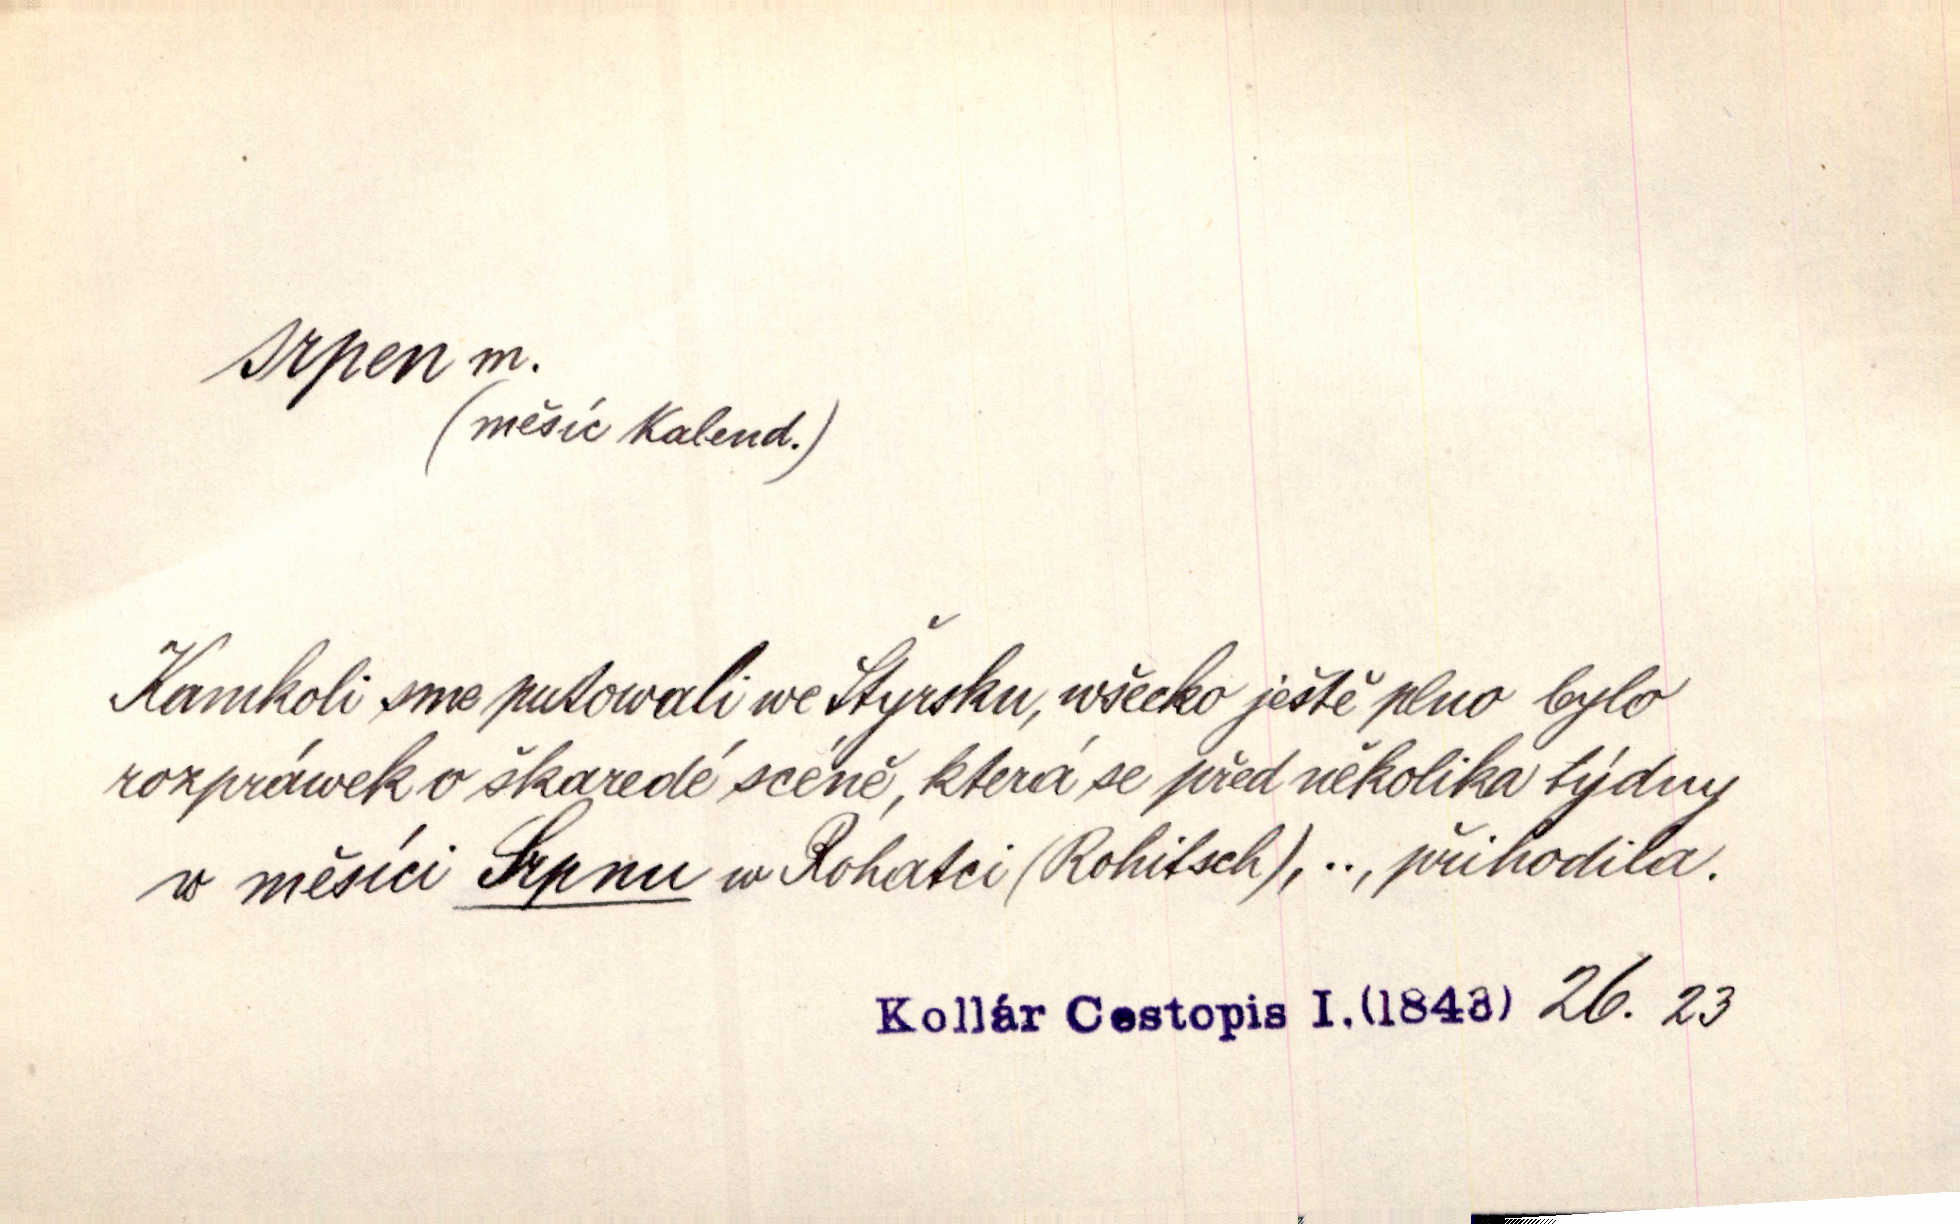 srpen m.
(měsíc Kalend.)
Kamkoli sme putowali we Štyrsku, wšecko ještě plno bylo
rozpráwek o škaredé scéně, která se před několika týdny
w měsíci Srpnu w Rohatci (Rohitsch), .., přihodila.
Kollár Cestopis I.(1843) 26. 23